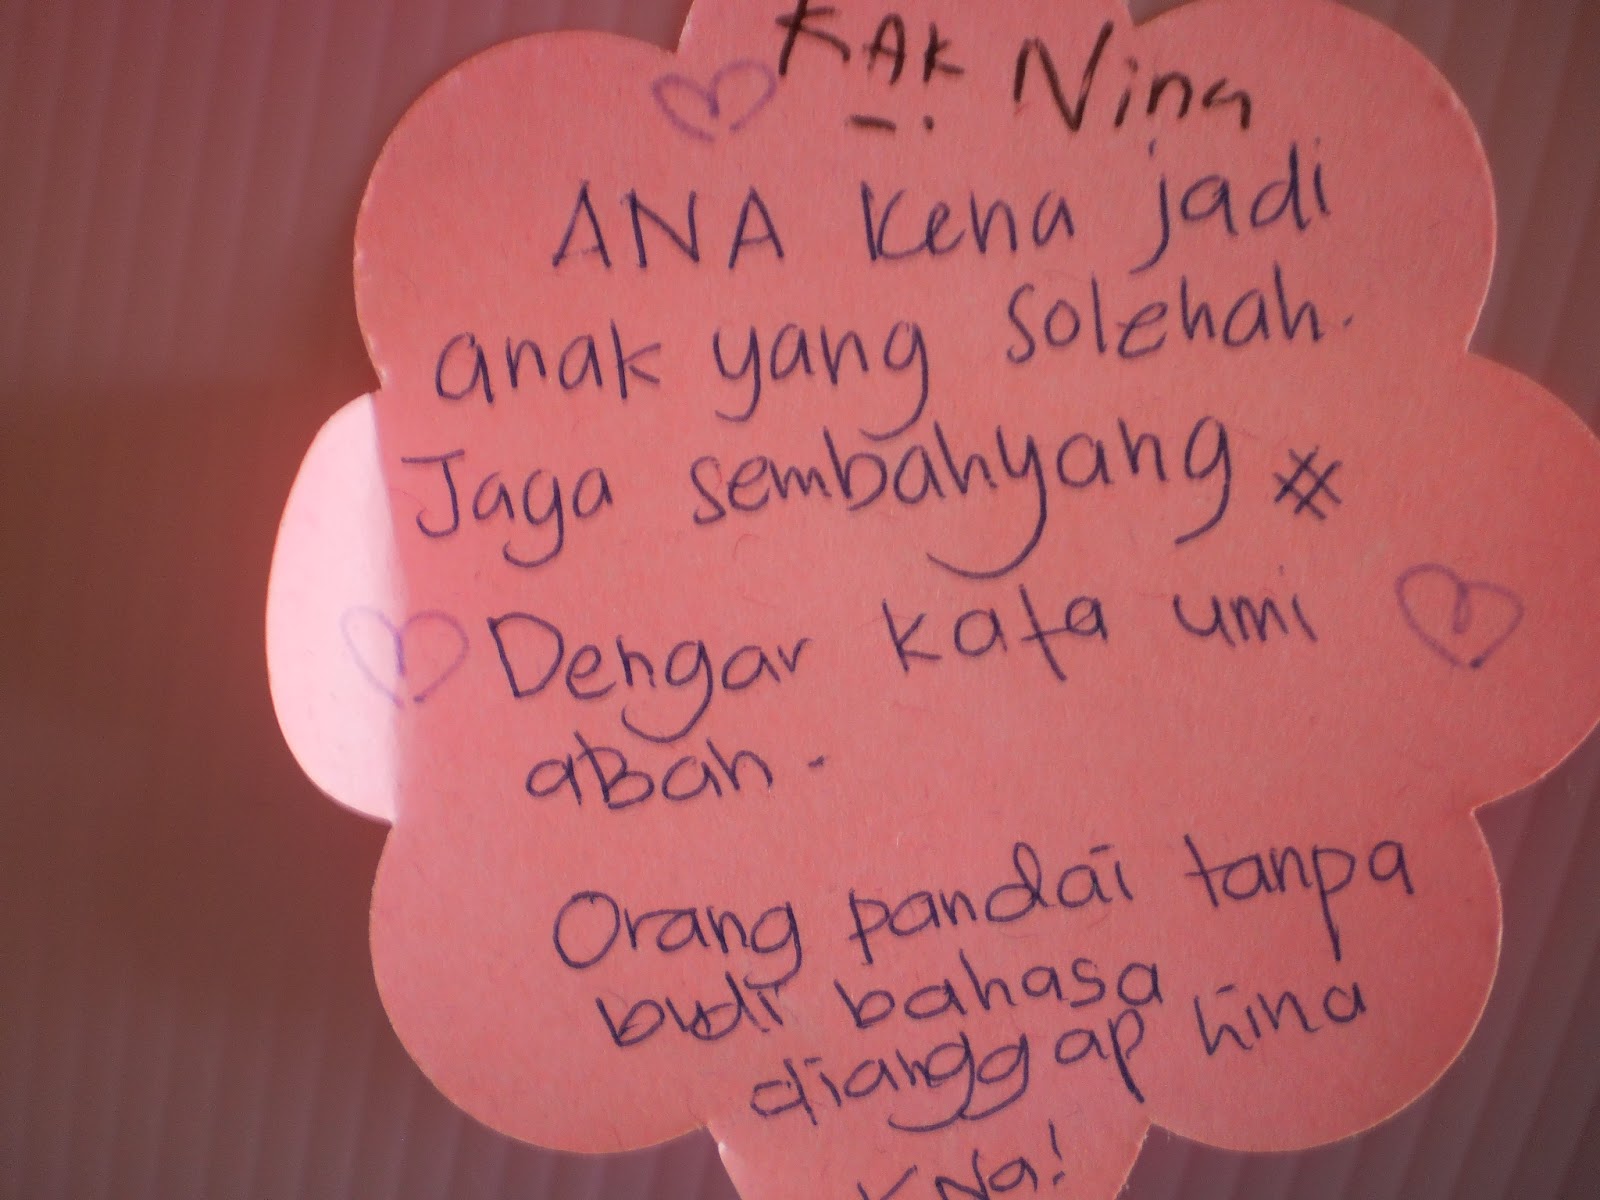 KAK Nina
ANA Kena jadi
anak yang solehah.
Jaga sembahyang #
Dengar kata umi
aBah.
Orang pandai tanpa
budi bahasa
dianggap hina